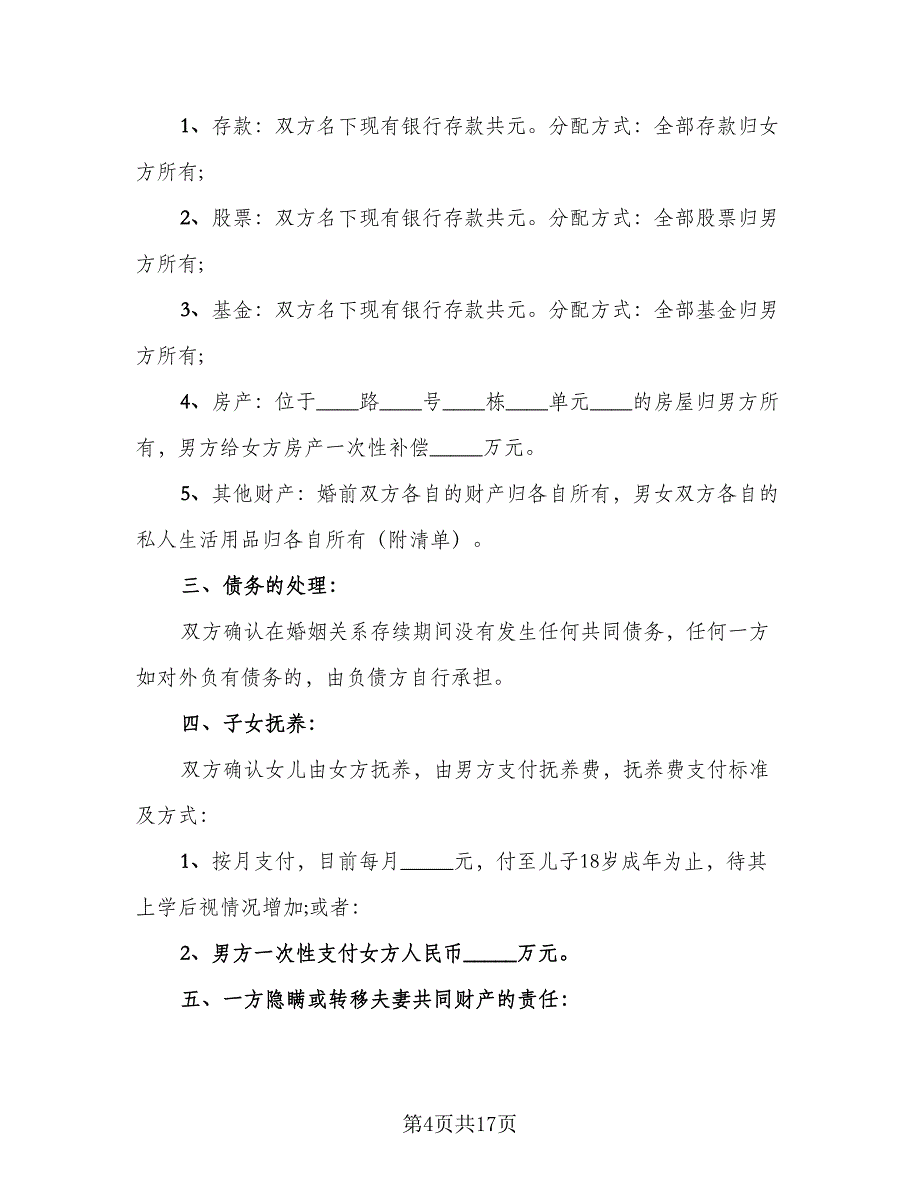 1、存款：双方名下现有银行存款共元。分配方式：全部存款归女
方所有;
2、股票：双方名下现有银行存款共元。分配方式：全部股票归男
方所有;
3、基金：双方名下现有银行存款共元。分配方式：全部基金归男
方所有;
4、房产：位于____路____号____栋____单元____的房屋归男方所
有，男方给女方房产一次性补偿_____万元。
5、其他财产：婚前双方各自的财产归各自所有，男女双方各自的
私人生活用品归各自所有（附清单）。
三、债务的处理：
双方确认在婚姻关系存续期间没有发生任何共同债务，任何一方
如对外负有债务的，由负债方自行承担。
四、子女抚养：
双方确认女儿由女方抚养，由男方支付抚养费，抚养费支付标准
及方式：
1、按月支付，目前每月_____元，付至儿子18岁成年为止，待其
上学后视情况增加;或者：
2、男方一次性支付女方人民币_____万元。
五、一方隐瞒或转移夫妻共同财产的责任：
第4页共17页